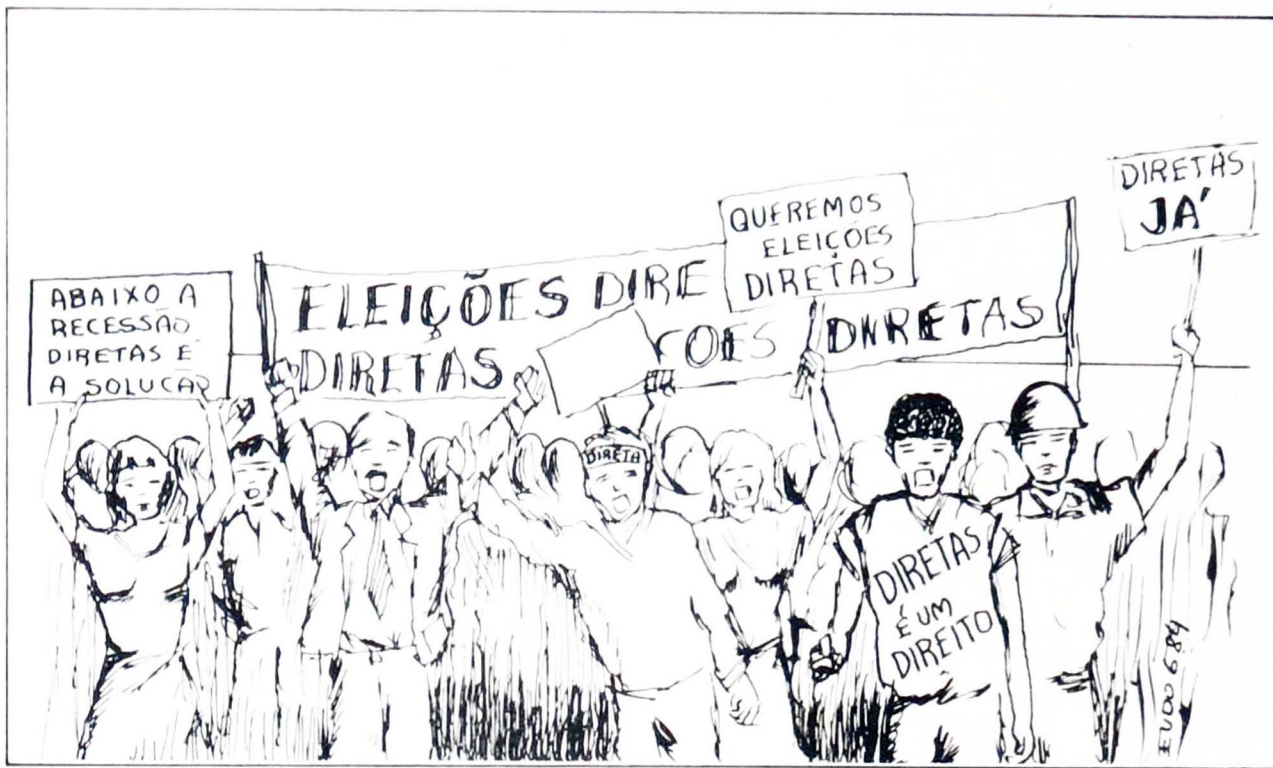 ABAIXO A
RECESSÃO
DIRETAS É
A SOLUCÃO
ELEIÇÕES DIRE
DIRETAS
ÇOES DIRETAS
QUEREMOS
ELEIÇÕES
DIRETAS
DIRETAS
JÁ
DIRETA
DIRETAS
É UM
DIREITO
EUDO 6.84